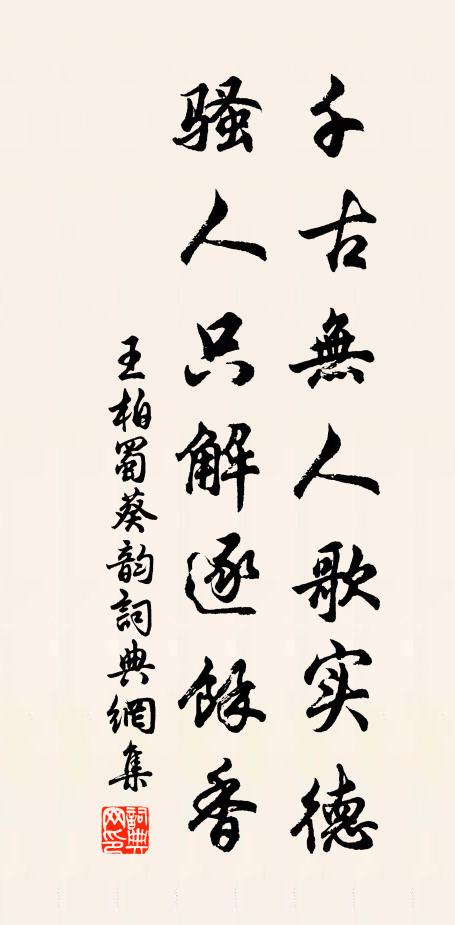 千古無人歌实德
骚人只解逐餘香
王柏蜀葵韵詞典網集
詞典网印